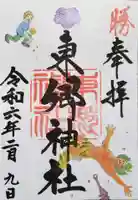 奉拝
勝
東郷神社
令和六年二月九日